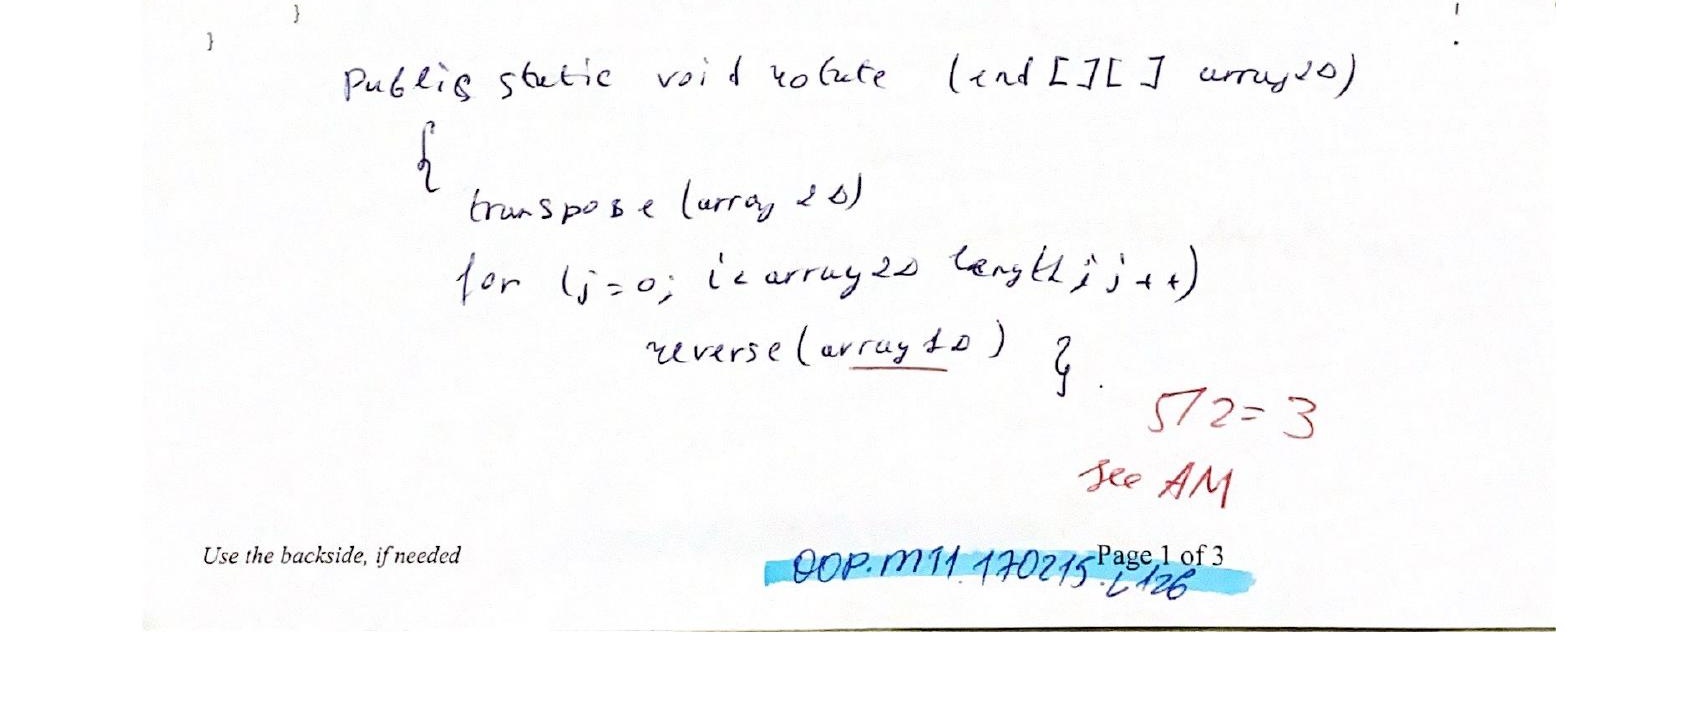 }
}
public static void rotate (end [][] array2D)
{
transpose (array 2D)
for (j=0; i< array2D length; j++)
reverse (array1D) }.
5/2=3
see AM
Use the backside, if needed
OOP.MT1.170215.L126
Page 1 of 3